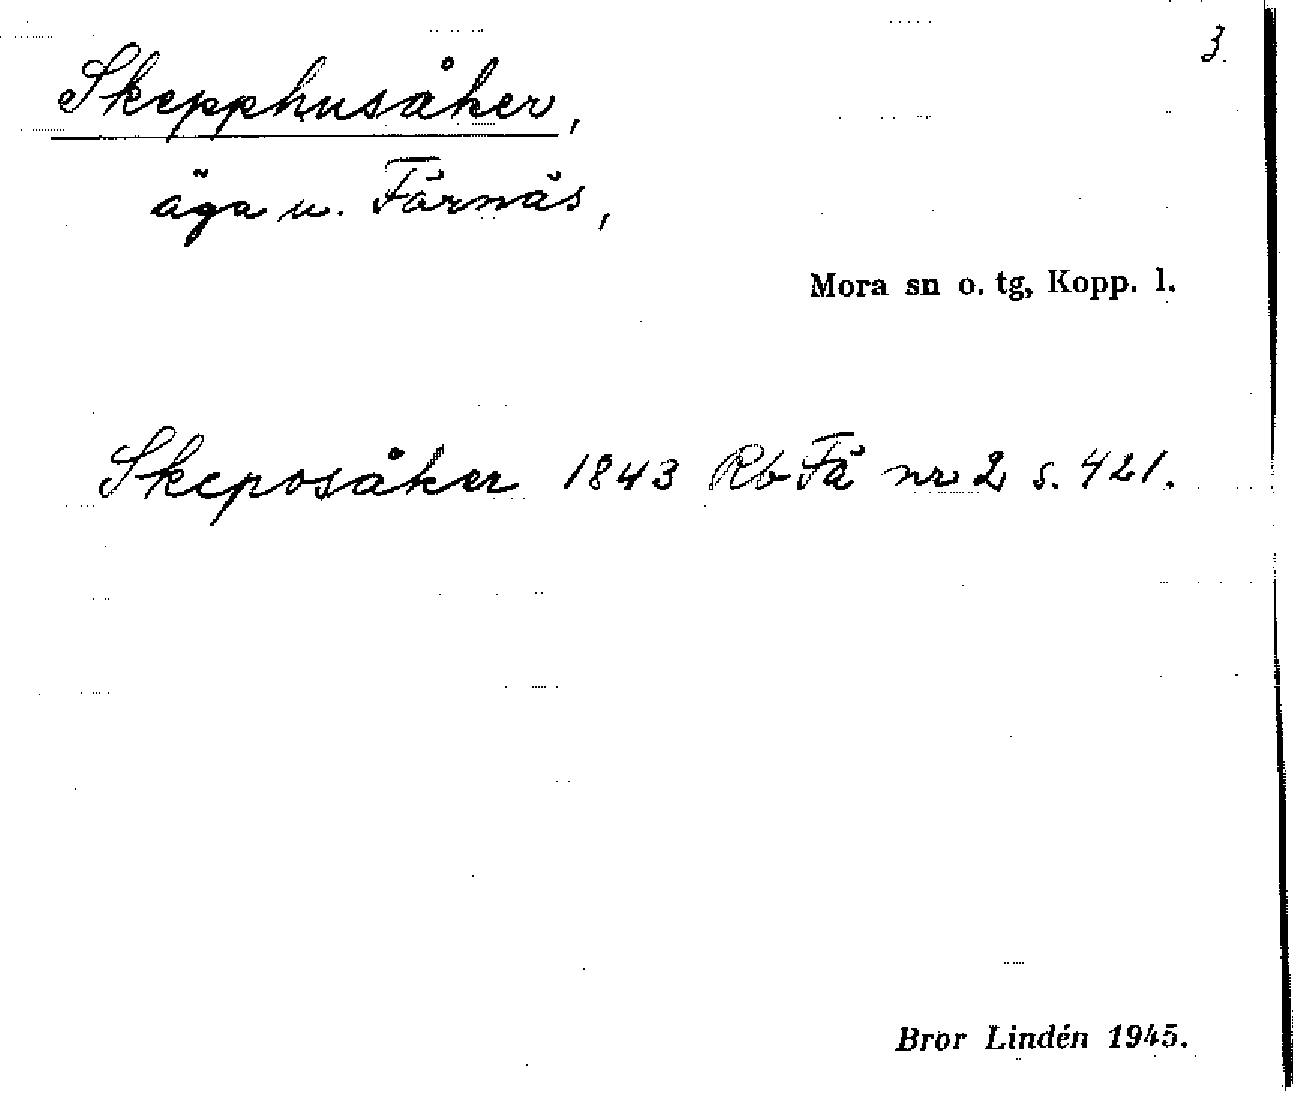 3.
Skepphusåker,
äga u. Färnäs,
Mora sn o. tg, Kopp. l.
Skeposåker 1843 Rb Fä nr 2 s. 421.
Bror Lindén 1945.